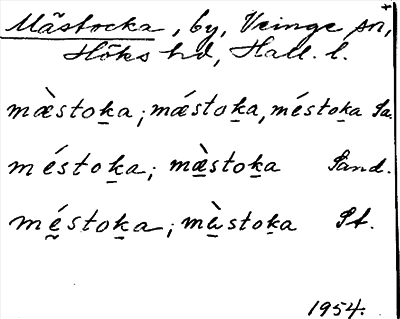 Mästocka, by, Veinge sn,
Höks hd, Hall. l.
mæ̀stoḵa; mǽstoḵa, méstoḵa Sa.
méstoḵa; mæ̱̀stoḵa Sand.
mé̱stoḵa; mæ̱̀stoḵa St.
1954.